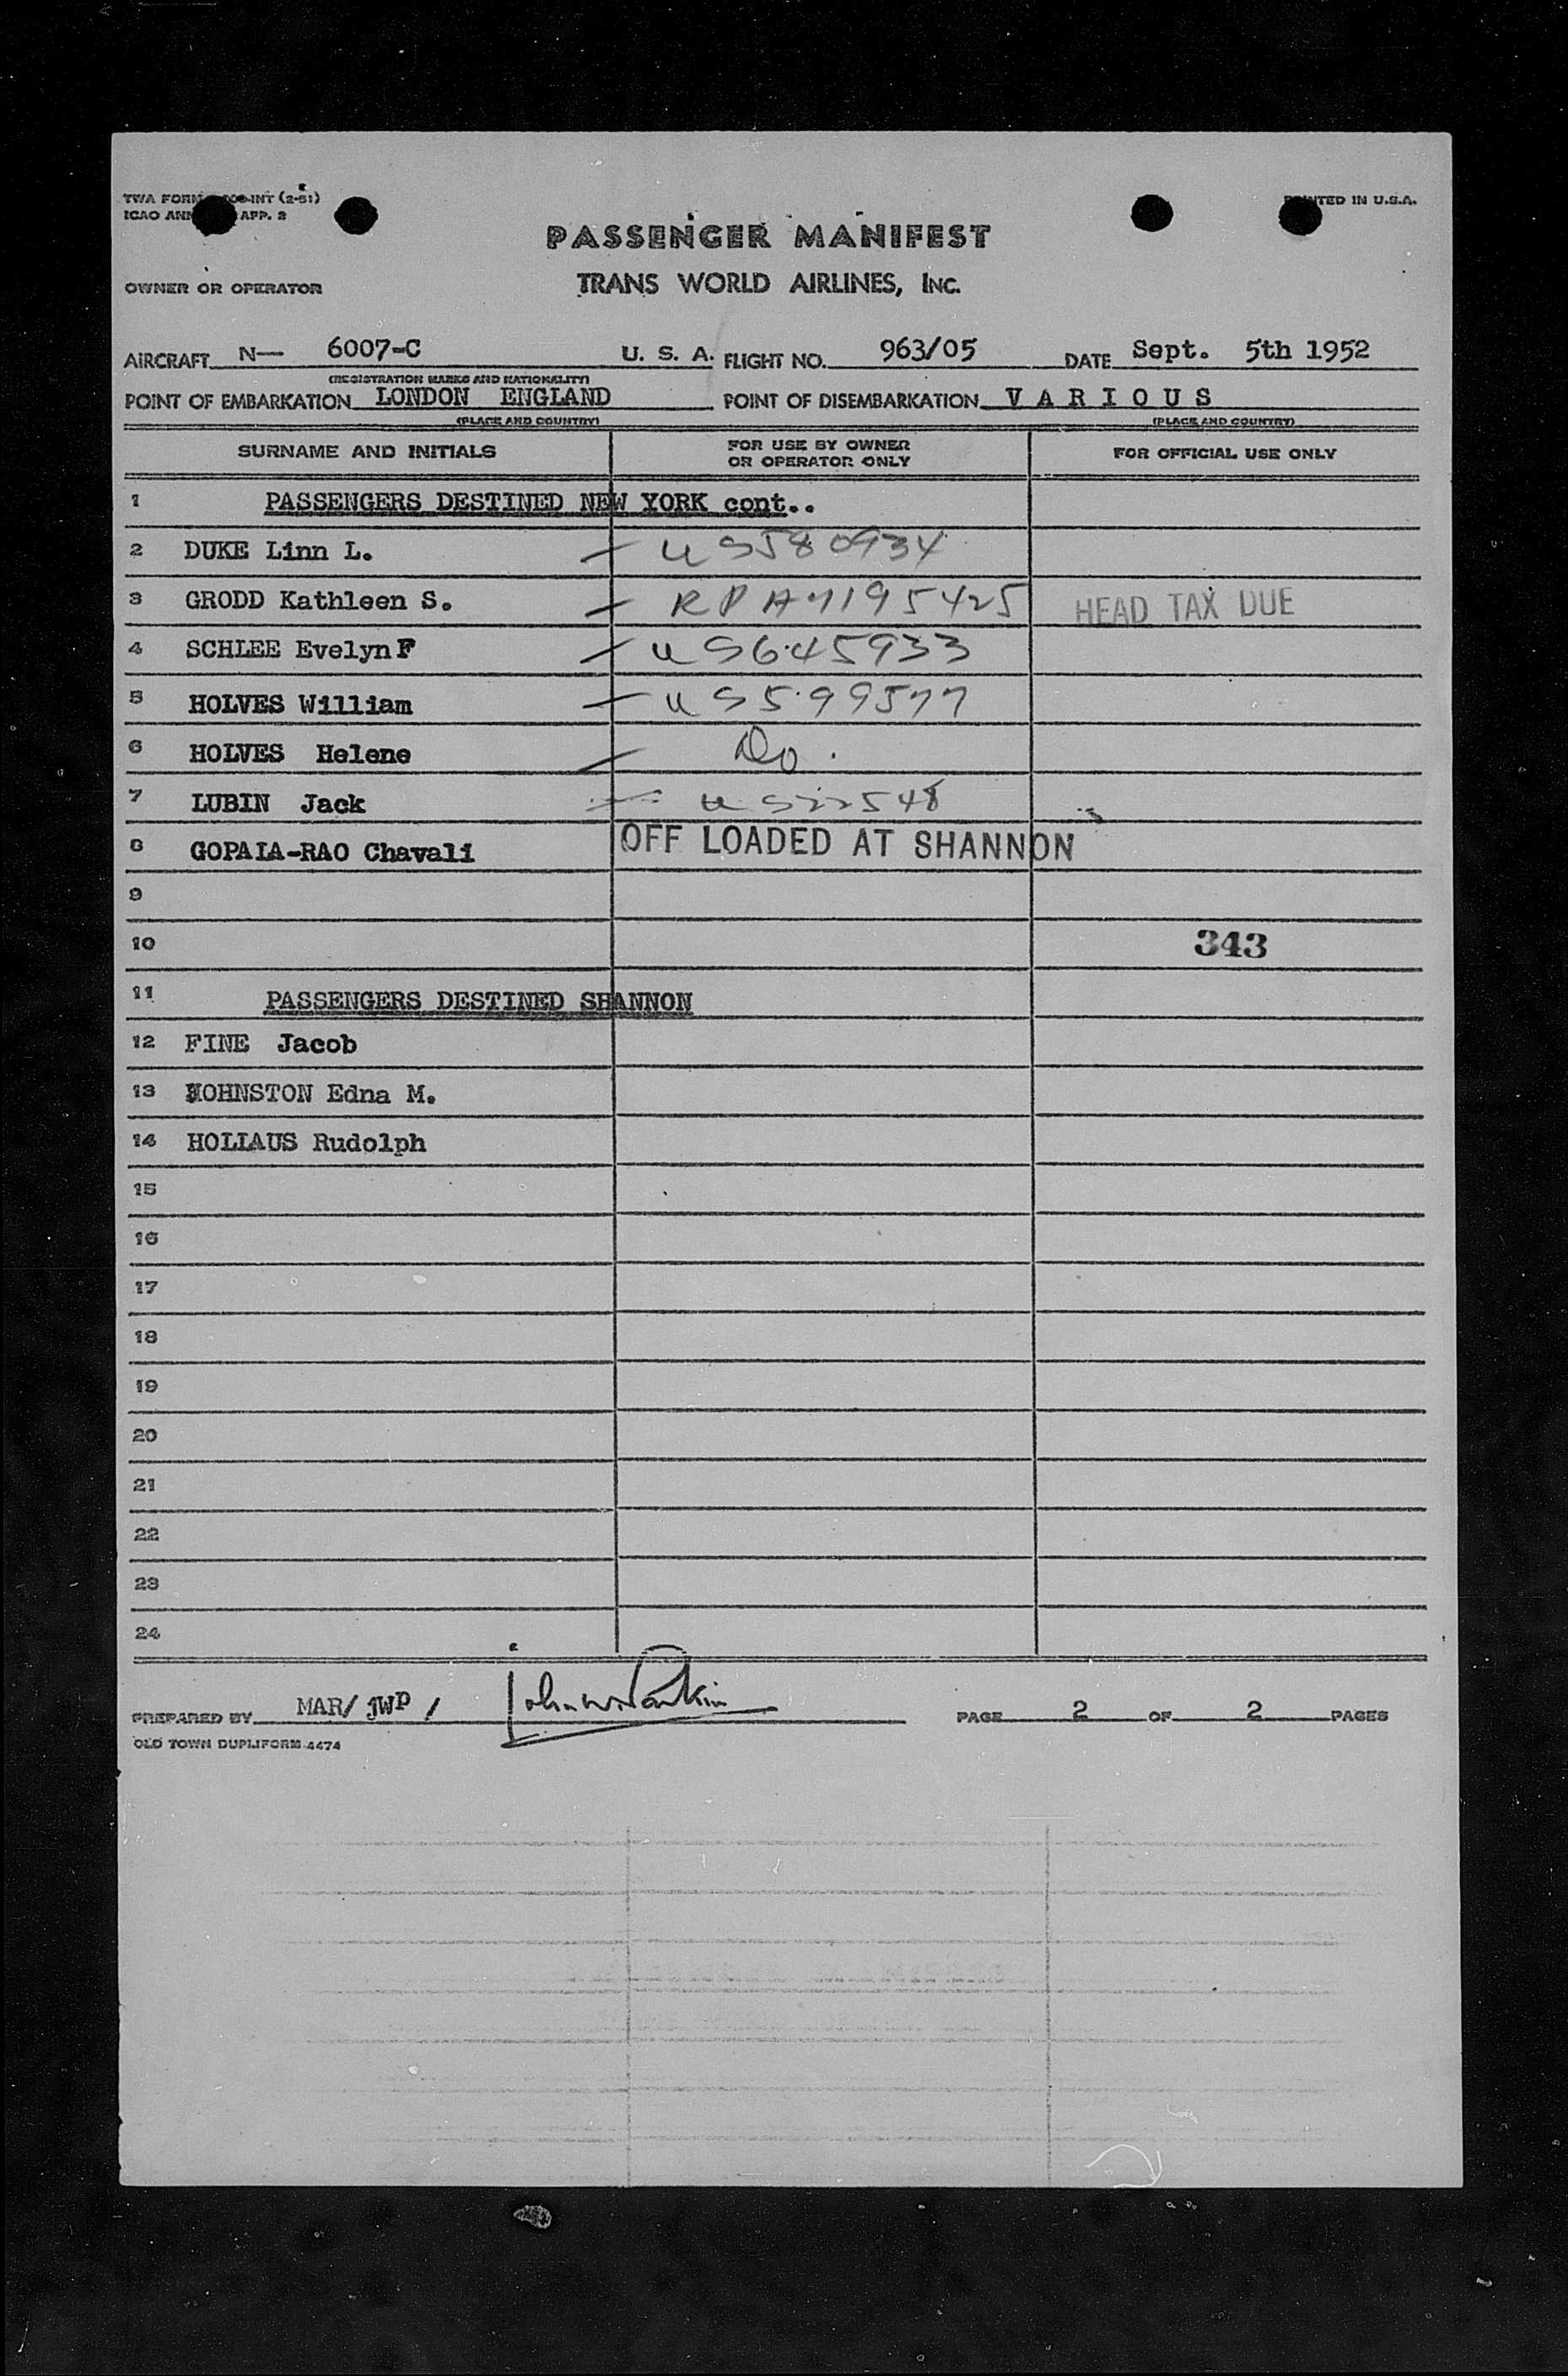 PRINTED IN U.S.A.
ICAO APP. 2
PASSENGER MANIFEST
OWNER OR OPERATOR
TRANS WORLD AIRLINES, INC.
AIRCRAFT N— 6007-C U. S. A. FLIGHT NO. 963/05 DATE Sept. 5th 1952
(REGISTRATION MARKS AND NATIONALITY)
POINT OF EMBARKATION LONDON ENGLAND POINT OF DISEMBARKATION V A R I O U S
(PLACE AND COUNTRY) (PLACE AND COUNTRY)
SURNAME AND INITIALS FOR USE BY OWNER OR OPERATOR ONLY FOR OFFICIAL USE ONLY
1 PASSENGERS DESTINED NEW YORK cont..
2 DUKE Linn L. — US580934
3 GRODD Kathleen S. — RP A7195425 HEAD TAX DUE
4 SCHLEE Evelyn F — US645933
5 HOLVES William — US599577
6 HOLVES Helene — Do.
7 LUBIN Jack — US22548
8 GOPALA-RAO Chavali OFF LOADED AT SHANNON
9
10 343
11 PASSENGERS DESTINED SHANNON
12 FINE Jacob
13 JOHNSTON Edna M.
14 HOLLAUS Rudolph
15
16
17
18
19
20
21
22
23
24
PREPARED BY MAR/ JWP / John W. Parkin PAGE 2 OF 2 PAGES
OLD TOWN DUPLIFORM 4474